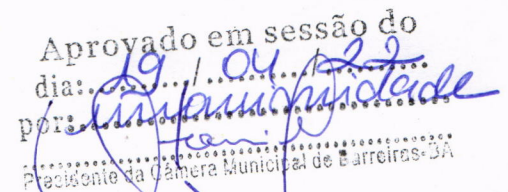 Aprovado em sessão do
dia: 19 / 04 / 22
por: unanimidade
Presidente da Câmera Municipal de Barreiras-BA